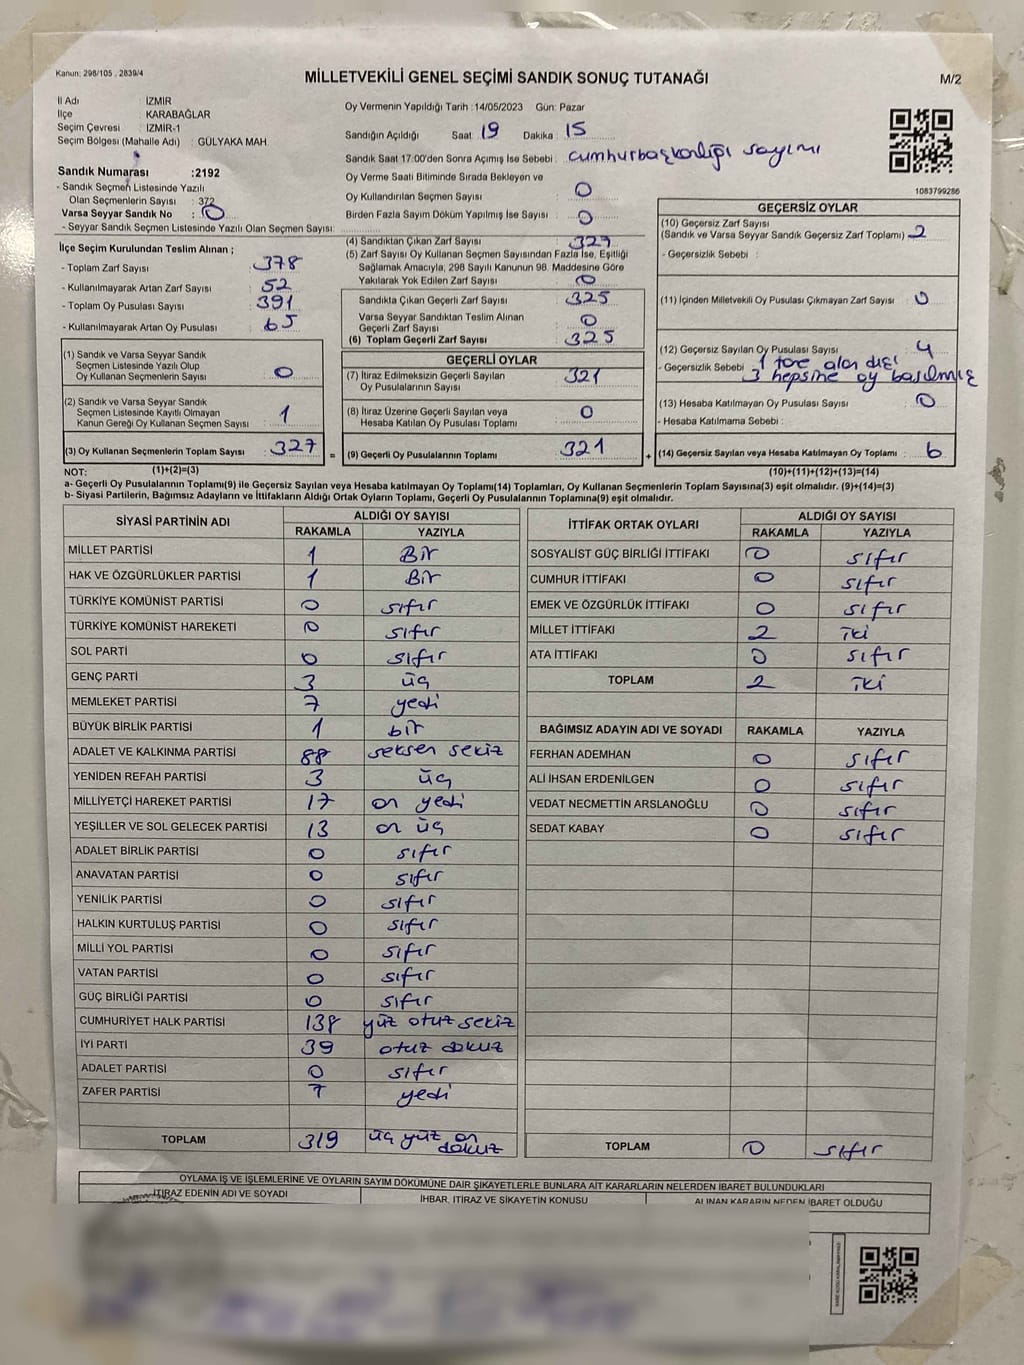 Kanun: 298/105 , 2839/4
MİLLETVEKİLİ GENEL SEÇİMİ SANDIK SONUÇ TUTANAĞI
M/2
İl Adı : İZMİR
İlçe : KARABAĞLAR
Seçim Çevresi : İZMİR-1
Seçim Bölgesi (Mahalle Adı) : GÜLYAKA MAH.
Sandık Numarası :2192
- Sandık Seçmen Listesinde Yazılı
Olan Seçmenlerin Sayısı : 372
Varsa Seyyar Sandık No : 0
- Seyyar Sandık Seçmen Listesinde Yazılı Olan Seçmen Sayısı:
Oy Vermenin Yapıldığı Tarih :14/05/2023 Gün: Pazar
Sandığın Açıldığı Saat : 19 Dakika : 15
Sandık Saat 17:00'den Sonra Açımış İse Sebebi : cumhurbaşkanlığı sayımı
Oy Verme Saati Bitiminde Sırada Bekleyen ve
Oy Kullandırılan Seçmen Sayısı : 0
Birden Fazla Sayım Döküm Yapılmış İse Sayısı : 0
1083799286
İlçe Seçim Kurulundan Teslim Alınan ;
- Toplam Zarf Sayısı : 378
- Kullanılmayarak Artan Zarf Sayısı : 52
- Toplam Oy Pusulası Sayısı : 391
- Kullanılmayarak Artan Oy Pusulası : 65
(1) Sandık ve Varsa Seyyar Sandık
Seçmen Listesinde Yazılı Olup
Oy Kullanan Seçmenlerin Sayısı : 0
(2) Sandık ve Varsa Seyyar Sandık
Seçmen Listesinde Kayıtlı Olmayan
Kanun Gereği Oy Kullanan Seçmen Sayısı : 1
(3) Oy Kullanan Seçmenlerin Toplam Sayısı : 327
(4) Sandıktan Çıkan Zarf Sayısı : 327
(5) Zarf Sayısı Oy Kullanan Seçmen Sayısından Fazla İse, Eşitliği
Sağlamak Amacıyla, 298 Sayılı Kanunun 98. Maddesine Göre
Yakılarak Yok Edilen Zarf Sayısı : 0
Sandıkta Çıkan Geçerli Zarf Sayısı : 325
Varsa Seyyar Sandıktan Teslim Alınan
Geçerli Zarf Sayısı : 0
(6) Toplam Geçerli Zarf Sayısı : 325
GEÇERLİ OYLAR
(7) İtiraz Edilmeksizin Geçerli Sayılan
Oy Pusulalarının Sayısı : 321
(8) İtiraz Üzerine Geçerli Sayılan veya
Hesaba Katılan Oy Pusulası Toplamı : 0
= (9) Geçerli Oy Pusulalarının Toplamı : 321
GEÇERSİZ OYLAR
(10) Geçersiz Zarf Sayısı
(Sandık ve Varsa Seyyar Sandık Geçersiz Zarf Toplamı) : 2
- Geçersizlik Sebebi :
(11) İçinden Milletvekili Oy Pusulası Çıkmayan Zarf Sayısı : 0
(12) Geçersiz Sayılan Oy Pusulası Sayısı : 4
- Geçersizlik Sebebi : 1 tane alan dışı
3 hepsine oy basılmış
(13) Hesaba Katılmayan Oy Pusulası Sayısı : 0
- Hesaba Katılmama Sebebi :
+ (14) Geçersiz Sayılan veya Hesaba Katılmayan Oy Toplamı : 6
NOT: (1)+(2)=(3) (10)+(11)+(12)+(13)=(14)
a- Geçerli Oy Pusulalarının Toplamı(9) ile Geçersiz Sayılan veya Hesaba katılmayan Oy Toplamı(14) Toplamları, Oy Kullanan Seçmenlerin Toplam Sayısına(3) eşit olmalıdır. (9)+(14)=(3)
b- Siyasi Partilerin, Bağımsız Adayların ve İttifakların Aldığı Ortak Oyların Toplamı, Geçerli Oy Pusulalarının Toplamına(9) eşit olmalıdır.
SİYASİ PARTİNİN ADI ALDIĞI OY SAYISI
RAKAMLA YAZIYLA
MİLLET PARTİSİ 1 Bir
HAK VE ÖZGÜRLÜKLER PARTİSİ 1 Bir
TÜRKİYE KOMÜNİST PARTİSİ 0 sıfır
TÜRKİYE KOMÜNİST HAREKETİ 0 sıfır
SOL PARTİ 0 sıfır
GENÇ PARTİ 3 üç
MEMLEKET PARTİSİ 7 yedi
BÜYÜK BİRLİK PARTİSİ 1 bir
ADALET VE KALKINMA PARTİSİ 88 seksen sekiz
YENİDEN REFAH PARTİSİ 3 üç
MİLLİYETÇİ HAREKET PARTİSİ 17 on yedi
YEŞİLLER VE SOL GELECEK PARTİSİ 13 on üç
ADALET BİRLİK PARTİSİ 0 sıfır
ANAVATAN PARTİSİ 0 sıfır
YENİLİK PARTİSİ 0 sıfır
HALKIN KURTULUŞ PARTİSİ 0 sıfır
MİLLİ YOL PARTİSİ 0 sıfır
VATAN PARTİSİ 0 sıfır
GÜÇ BİRLİĞİ PARTİSİ 0 sıfır
CUMHURİYET HALK PARTİSİ 138 yüz otuz sekiz
İYİ PARTİ 39 otuz dokuz
ADALET PARTİSİ 0 sıfır
ZAFER PARTİSİ 7 yedi
TOPLAM 319 üç yüz on
dokuz
İTTİFAK ORTAK OYLARI ALDIĞI OY SAYISI
RAKAMLA YAZIYLA
SOSYALİST GÜÇ BİRLİĞİ İTTİFAKI 0 sıfır
CUMHUR İTTİFAKI 0 sıfır
EMEK VE ÖZGÜRLÜK İTTİFAKI 0 sıfır
MİLLET İTTİFAKI 2 iki
ATA İTTİFAKI 0 sıfır
TOPLAM 2 iki
BAĞIMSIZ ADAYIN ADI VE SOYADI RAKAMLA YAZIYLA
FERHAN ADEMHAN 0 sıfır
ALİ İHSAN ERDENİLGEN 0 sıfır
VEDAT NECMETTİN ARSLANOĞLU 0 sıfır
SEDAT KABAY 0 sıfır
TOPLAM 0 sıfır
OYLAMA İŞ VE İŞLEMLERİNE VE OYLARIN SAYIM DÖKÜMÜNE DAİR ŞİKAYETLERLE BUNLARA AİT KARARLARIN NELERDEN İBARET BULUNDUKLARI
İTİRAZ EDENİN ADI VE SOYADI İHBAR, İTİRAZ VE ŞİKAYETİN KONUSU ALINAN KARARIN NEDEN İBARET OLDUĞU